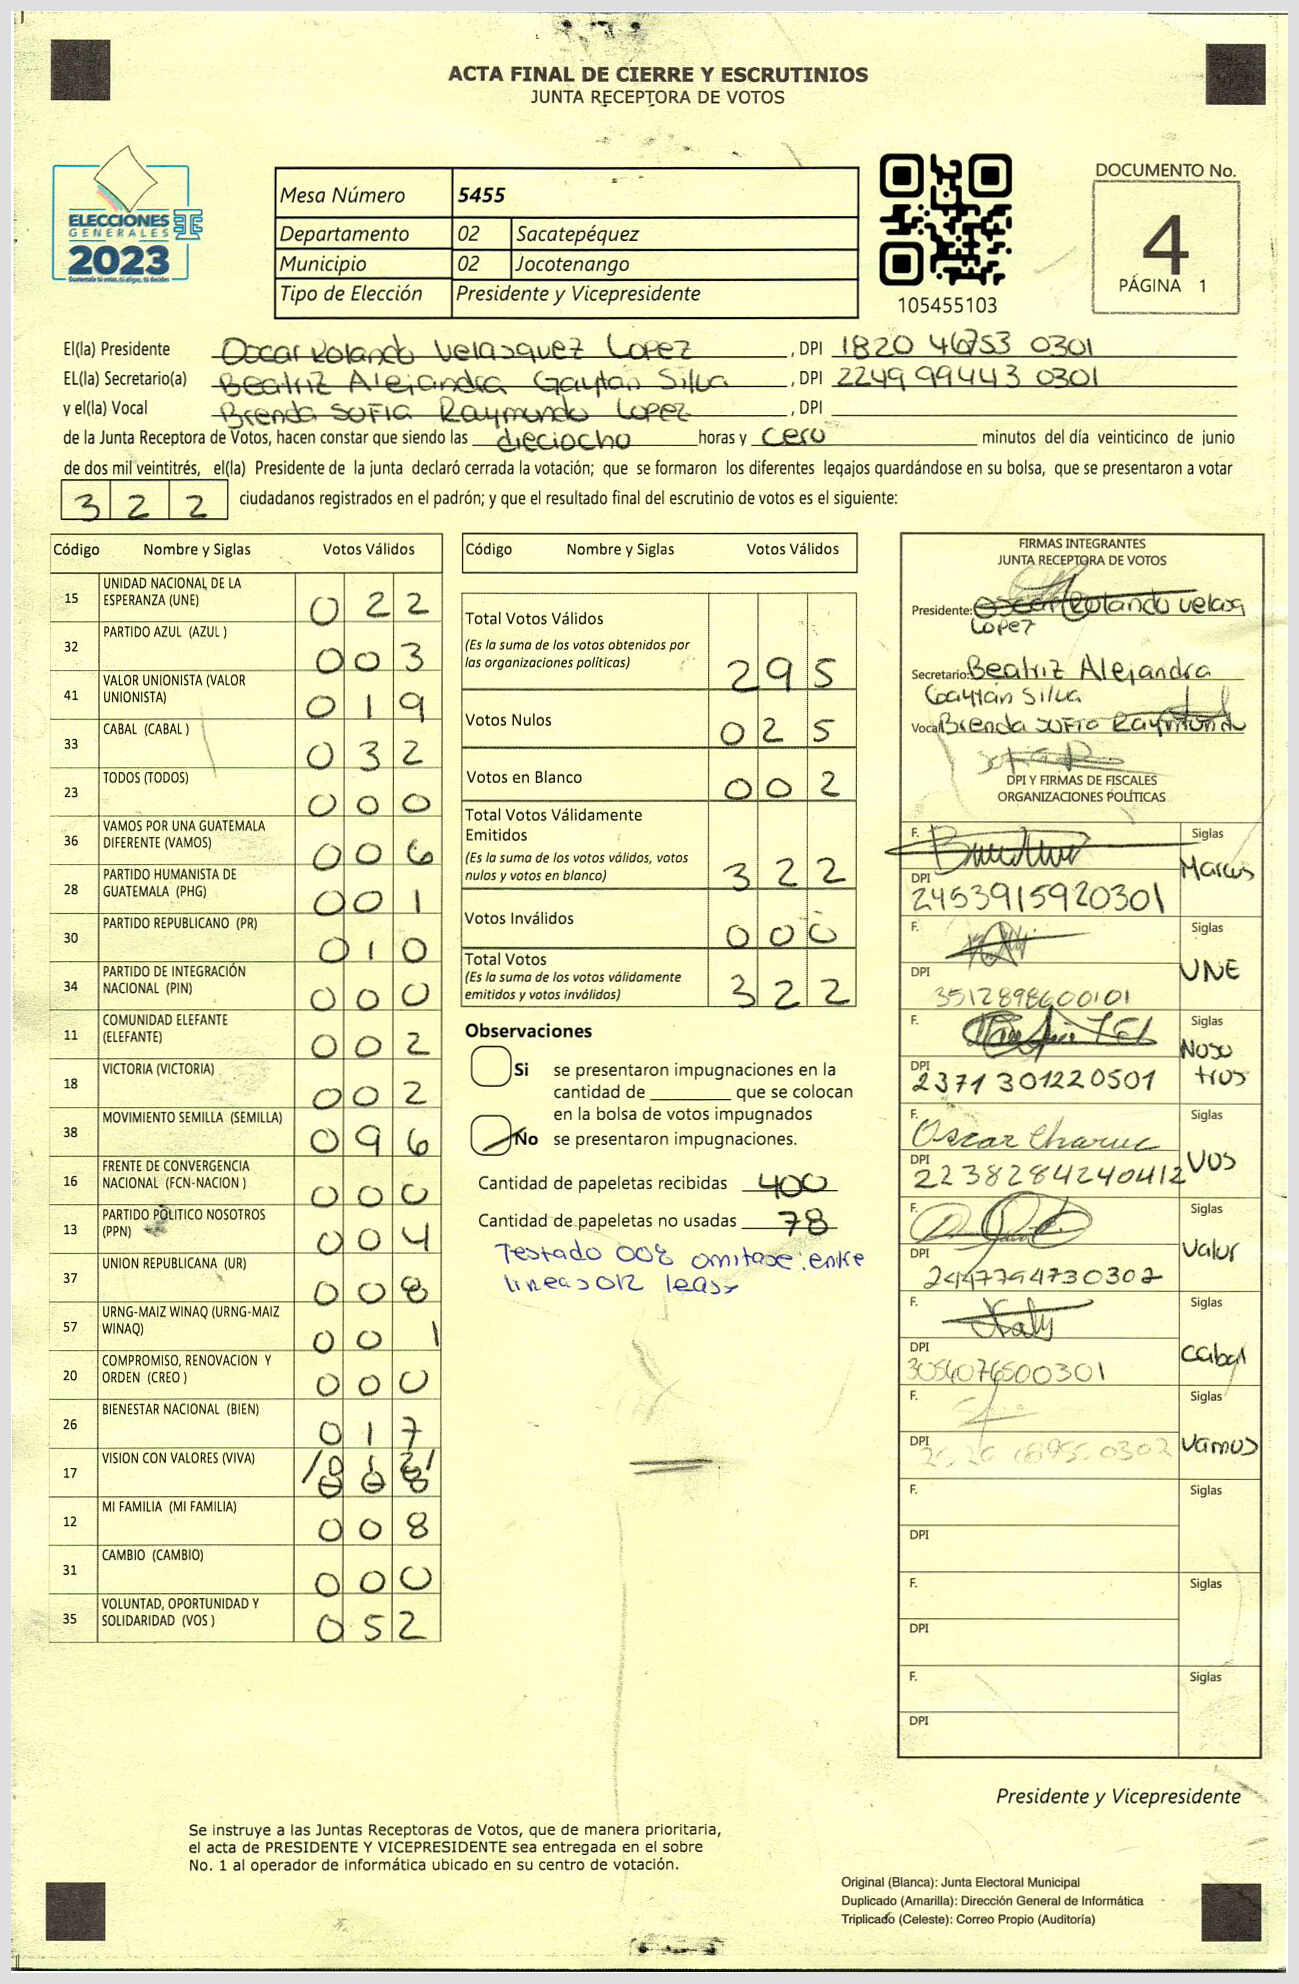 ACTA FINAL DE CIERRE Y ESCRUTINIOS
JUNTA RECEPTORA DE VOTOS
ELECCIONES
GENERALES
2023
Mesa Número 5455
Departamento 02 Sacatepéquez
Municipio 02 Jocotenango
Tipo de Elección Presidente y Vicepresidente
105455103
DOCUMENTO No.
4
PÁGINA 1
El(la) Presidente Oscar Rolando Velasquez Lopez , DPI 1820 46753 0301
EL(la) Secretario(a) Beatriz Alejandra Gaytán Silva , DPI 2249 99443 0301
y el(la) Vocal Brenda Sofia Raymundo Lopez , DPI
de la Junta Receptora de Votos, hacen constar que siendo las dieciocho horas y cero minutos del día veinticinco de junio
de dos mil veintitrés, el(la) Presidente de la junta declaró cerrada la votación; que se formaron los diferentes legajos quardándose en su bolsa, que se presentaron a votar
322 ciudadanos registrados en el padrón; y que el resultado final del escrutinio de votos es el siguiente:
Código Nombre y Siglas Votos Válidos
15 UNIDAD NACIONAL DE LA
ESPERANZA (UNE) 022
32 PARTIDO AZUL (AZUL ) 003
41 VALOR UNIONISTA (VALOR
UNIONISTA) 019
33 CABAL (CABAL ) 032
23 TODOS (TODOS) 000
36 VAMOS POR UNA GUATEMALA
DIFERENTE (VAMOS) 006
28 PARTIDO HUMANISTA DE
GUATEMALA (PHG) 001
30 PARTIDO REPUBLICANO (PR) 010
34 PARTIDO DE INTEGRACIÓN
NACIONAL (PIN) 000
11 COMUNIDAD ELEFANTE
(ELEFANTE) 002
18 VICTORIA (VICTORIA) 002
38 MOVIMIENTO SEMILLA (SEMILLA) 096
16 FRENTE DE CONVERGENCIA
NACIONAL (FCN-NACION ) 000
13 PARTIDO POLITICO NOSOTROS
(PPN) 004
37 UNION REPUBLICANA (UR) 008
57 URNG-MAIZ WINAQ (URNG-MAIZ
WINAQ) 001
20 COMPROMISO, RENOVACION Y
ORDEN (CREO ) 000
26 BIENESTAR NACIONAL (BIEN) 017
17 VISION CON VALORES (VIVA) /012/
008
12 MI FAMILIA (MI FAMILIA) 008
31 CAMBIO (CAMBIO) 000
35 VOLUNTAD, OPORTUNIDAD Y
SOLIDARIDAD (VOS ) 052
Código Nombre y Siglas Votos Válidos
Total Votos Válidos
(Es la suma de los votos obtenidos por
las organizaciones políticas) 295
Votos Nulos 025
Votos en Blanco 002
Total Votos Válidamente
Emitidos
(Es la suma de los votos válidos, votos
nulos y votos en blanco) 322
Votos Inválidos 000
Total Votos
(Es la suma de los votos válidamente
emitidos y votos inválidos) 322
Observaciones
Si se presentaron impugnaciones en la
cantidad de ________ que se colocan
en la bolsa de votos impugnados
No se presentaron impugnaciones.
Cantidad de papeletas recibidas 400
Cantidad de papeletas no usadas 78
Testado 008 omitase: entre
lineas 012 lease
FIRMAS INTEGRANTES
JUNTA RECEPTORA DE VOTOS
Presidente: Oscar Rolando Velasq
Lopez
Secretario: Beatriz Alejandra
Gaytán Silva
Vocal Brenda Sofia Raymundo
DPI Y FIRMAS DE FISCALES
ORGANIZACIONES POLÍTICAS
F. Siglas
DPI 2453915920301
F. Siglas UNE
DPI 3512898600101
F. Siglas Noso
tros
DPI 2371 301220501
F. Oscar Siglas VOS
DPI 2238284240412
F. Siglas Valor
DPI 2447794730302
F. Siglas Cabal
DPI 3054076500301
F. Siglas Vamos
DPI
F. Siglas
DPI
F. Siglas
DPI
F. Siglas
DPI
Presidente y Vicepresidente
Se instruye a las Juntas Receptoras de Votos, que de manera prioritaria,
el acta de PRESIDENTE Y VICEPRESIDENTE sea entregada en el sobre
No. 1 al operador de informática ubicado en su centro de votación.
Original (Blanca): Junta Electoral Municipal
Duplicado (Amarilla): Dirección General de Informática
Triplicado (Celeste): Correo Propio (Auditoría)